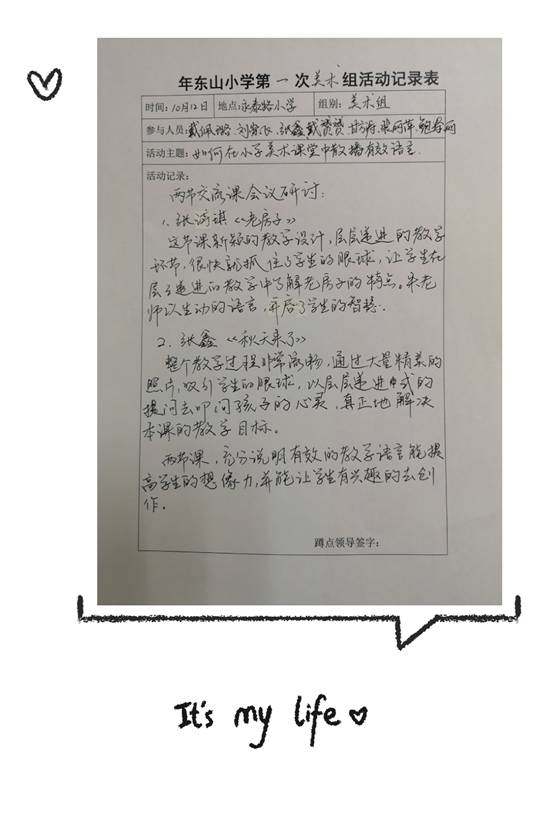 年东山小学第一次美术组活动记录表
时间：10月12日 地点：永泰路小学 组别：美术组
参与人员：戴佩璐、刘 张鑫 戴赟赟
活动主题：如何在小学美术课堂中散播有效语言.
活动记录：
两节交流课会议研讨：
1. 张涛琪《老房子》
这节课新颖的教学设计，层层递进的教学
环节，很快就抓住了学生的眼球，让学生在
层层递进的教学中了解老房子的特点。朱老
师以生动的语言，开启了学生的智慧.
2. 张鑫《秋天来了》
整个教学过程非常流畅，通过大量精美的
照片，吸引学生的眼球，以层层递进式的
提问去叩问孩子的心灵，真正地解决
本课的教学目标。
两节课，充分说明有效的教学语言能提
高学生的想像力，并能让学生有兴趣的去创
作.
蹲点领导签字：
It's my life